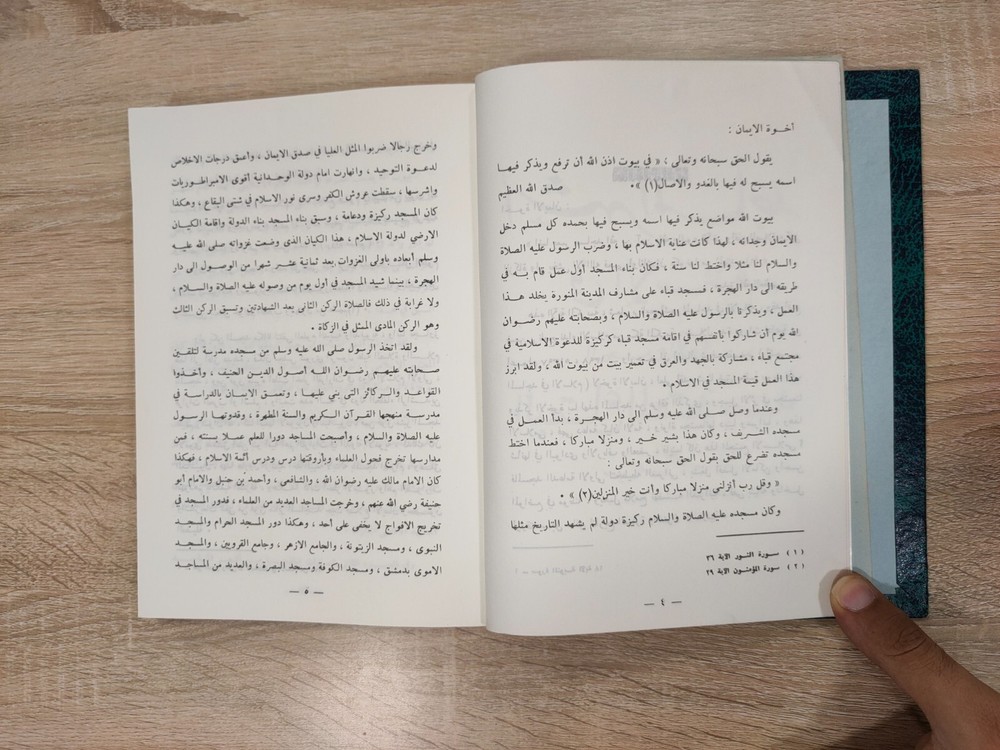 أخوة الايمان :
يقول الحق سبحانه وتعالى : « في بيوت اذن الله أن ترفع ويذكر فيهـا
اسمه يسبح له فيها بالغدو والاصال(١) »٠ صدق الله العظيم
بيوت الله مواضع يذكر فيها اسمه ويسبح فيها بحمده كل مسلم دخل
الايمان وجدانه ، لهذا كانت عناية الاسلام بها ، وضرب الرسول عليه الصلاة
والسلام لنا مثلا واختط لنا سنة ، فكان بناء المسجد أول عمل قام بـه في
طريقه الى دار الهجرة ، فمسجد قباء على مشارف المدينة المنورة يخلد هـذا
العمل ، ويذكرنا بالرسول عليه الصلاة والسلام ، وبصحابته عليهم رضـوان
الله يوم أن شاركوا بأنفسهم في اقامة مسجد قباء كركيزة للدعوة الاسلامية في
مجتمع قباء ، مشاركة بالجهد والعرق في تعمير بيت من بيوت الله ، ولقد ابرز
هذا العمل قيمة المسجد في الاسلام ٠
وعندما وصل صلى الله عليه وسلم الى دار الهجرة ، بدأ العمـل في
مسجده الشريف ، وكان هذا بشير خير ، ومنزلا مباركا ، فعندما اختط
مسجده تضرع للحق بقول الحق سبحانه وتعالى :
« وقل رب أنزلني منزلا مباركا وأنت خير المنزلين(٢) » ٠
وكان مسجده عليه الصلاة والسلام ركيزة دولة لم يشهد التاريخ مثلها
(١) سورة النـور الاية ٣٦
(٢) سورة المؤمنـون الاية ٢٩
— ٤ —
وتخرج رجالا ضربوا المثل العليا في صدق الايمان ، وأعمق درجات الاخلاص
لدعـوة التوحيد ، وانهارت امام دولة الوحـدانية أقوى الامبراطـوريات
واشرسها ، سقطت عروش الكفر وسرى نور الاسلام في شتى البقاع ، وهكذا
كان المسجد ركيزة ودعامة ، وسبق بناء المسجد بناء الدولة واقامة الكيـان
الارضي لدولة الاسلام ، هذا الكيان الذى وضعت غزواته صلى الله عليـه
وسلم أبعاده باولى الغزوات بعد ثمانية عشـر شهرا من الوصـول الى دار
الهجرة ، بينما شيد المسجد في أول يوم من وصوله عليه الصلاة والسلام ،
ولا غرابة في ذلك فالصلاة الركن الثانى بعد الشهادتين وتسبق الركن الثالث
وهو الركن المادى الممثل في الزكاة ٠
ولقد اتخذ الرسول صلى الله عليه وسلم من مسجده مدرسة لتلقين
صحابته عليهـم رضـوان اللـه أصـول الديـن الحنيف ، وأخـذوا
القواعـد والركائز التى بني عليهـا ، وتعمـق الايمـان بالدراسة في
مدرسـة منهجها القرآن الـكريم والسنة المطهرة ، وقدوتهـا الرسـول
عليه الصلاة والسلام ، وأصبحت المساجد دورا للعلم عمـلا بسنته ، فمن
مدارسها تخرج فحول العلماء وبأروقتها درس ودرس أئمة الاسلام ، فهكذا
كان الامام مالك عليه رضوان الله ، والشافعي ، وأحمد بن حنبل والامام أبو
حنيفة رضي الله عنهم ، وخرجت المساجد العديد من العلماء ، فدور المسجد في
تخريج الافواج لا يخفى على أحد ، وهكذا دور المسجد الحرام والمسجـد
النبوى ، ومسجد الزيتونة ، والجامع الازهر ، وجامع القرويين ، والمسجـد
الاموى بدمشق ، ومسجد الكوفة ومسجد البصرة ، والعديد من المساجـد
— ٥ —